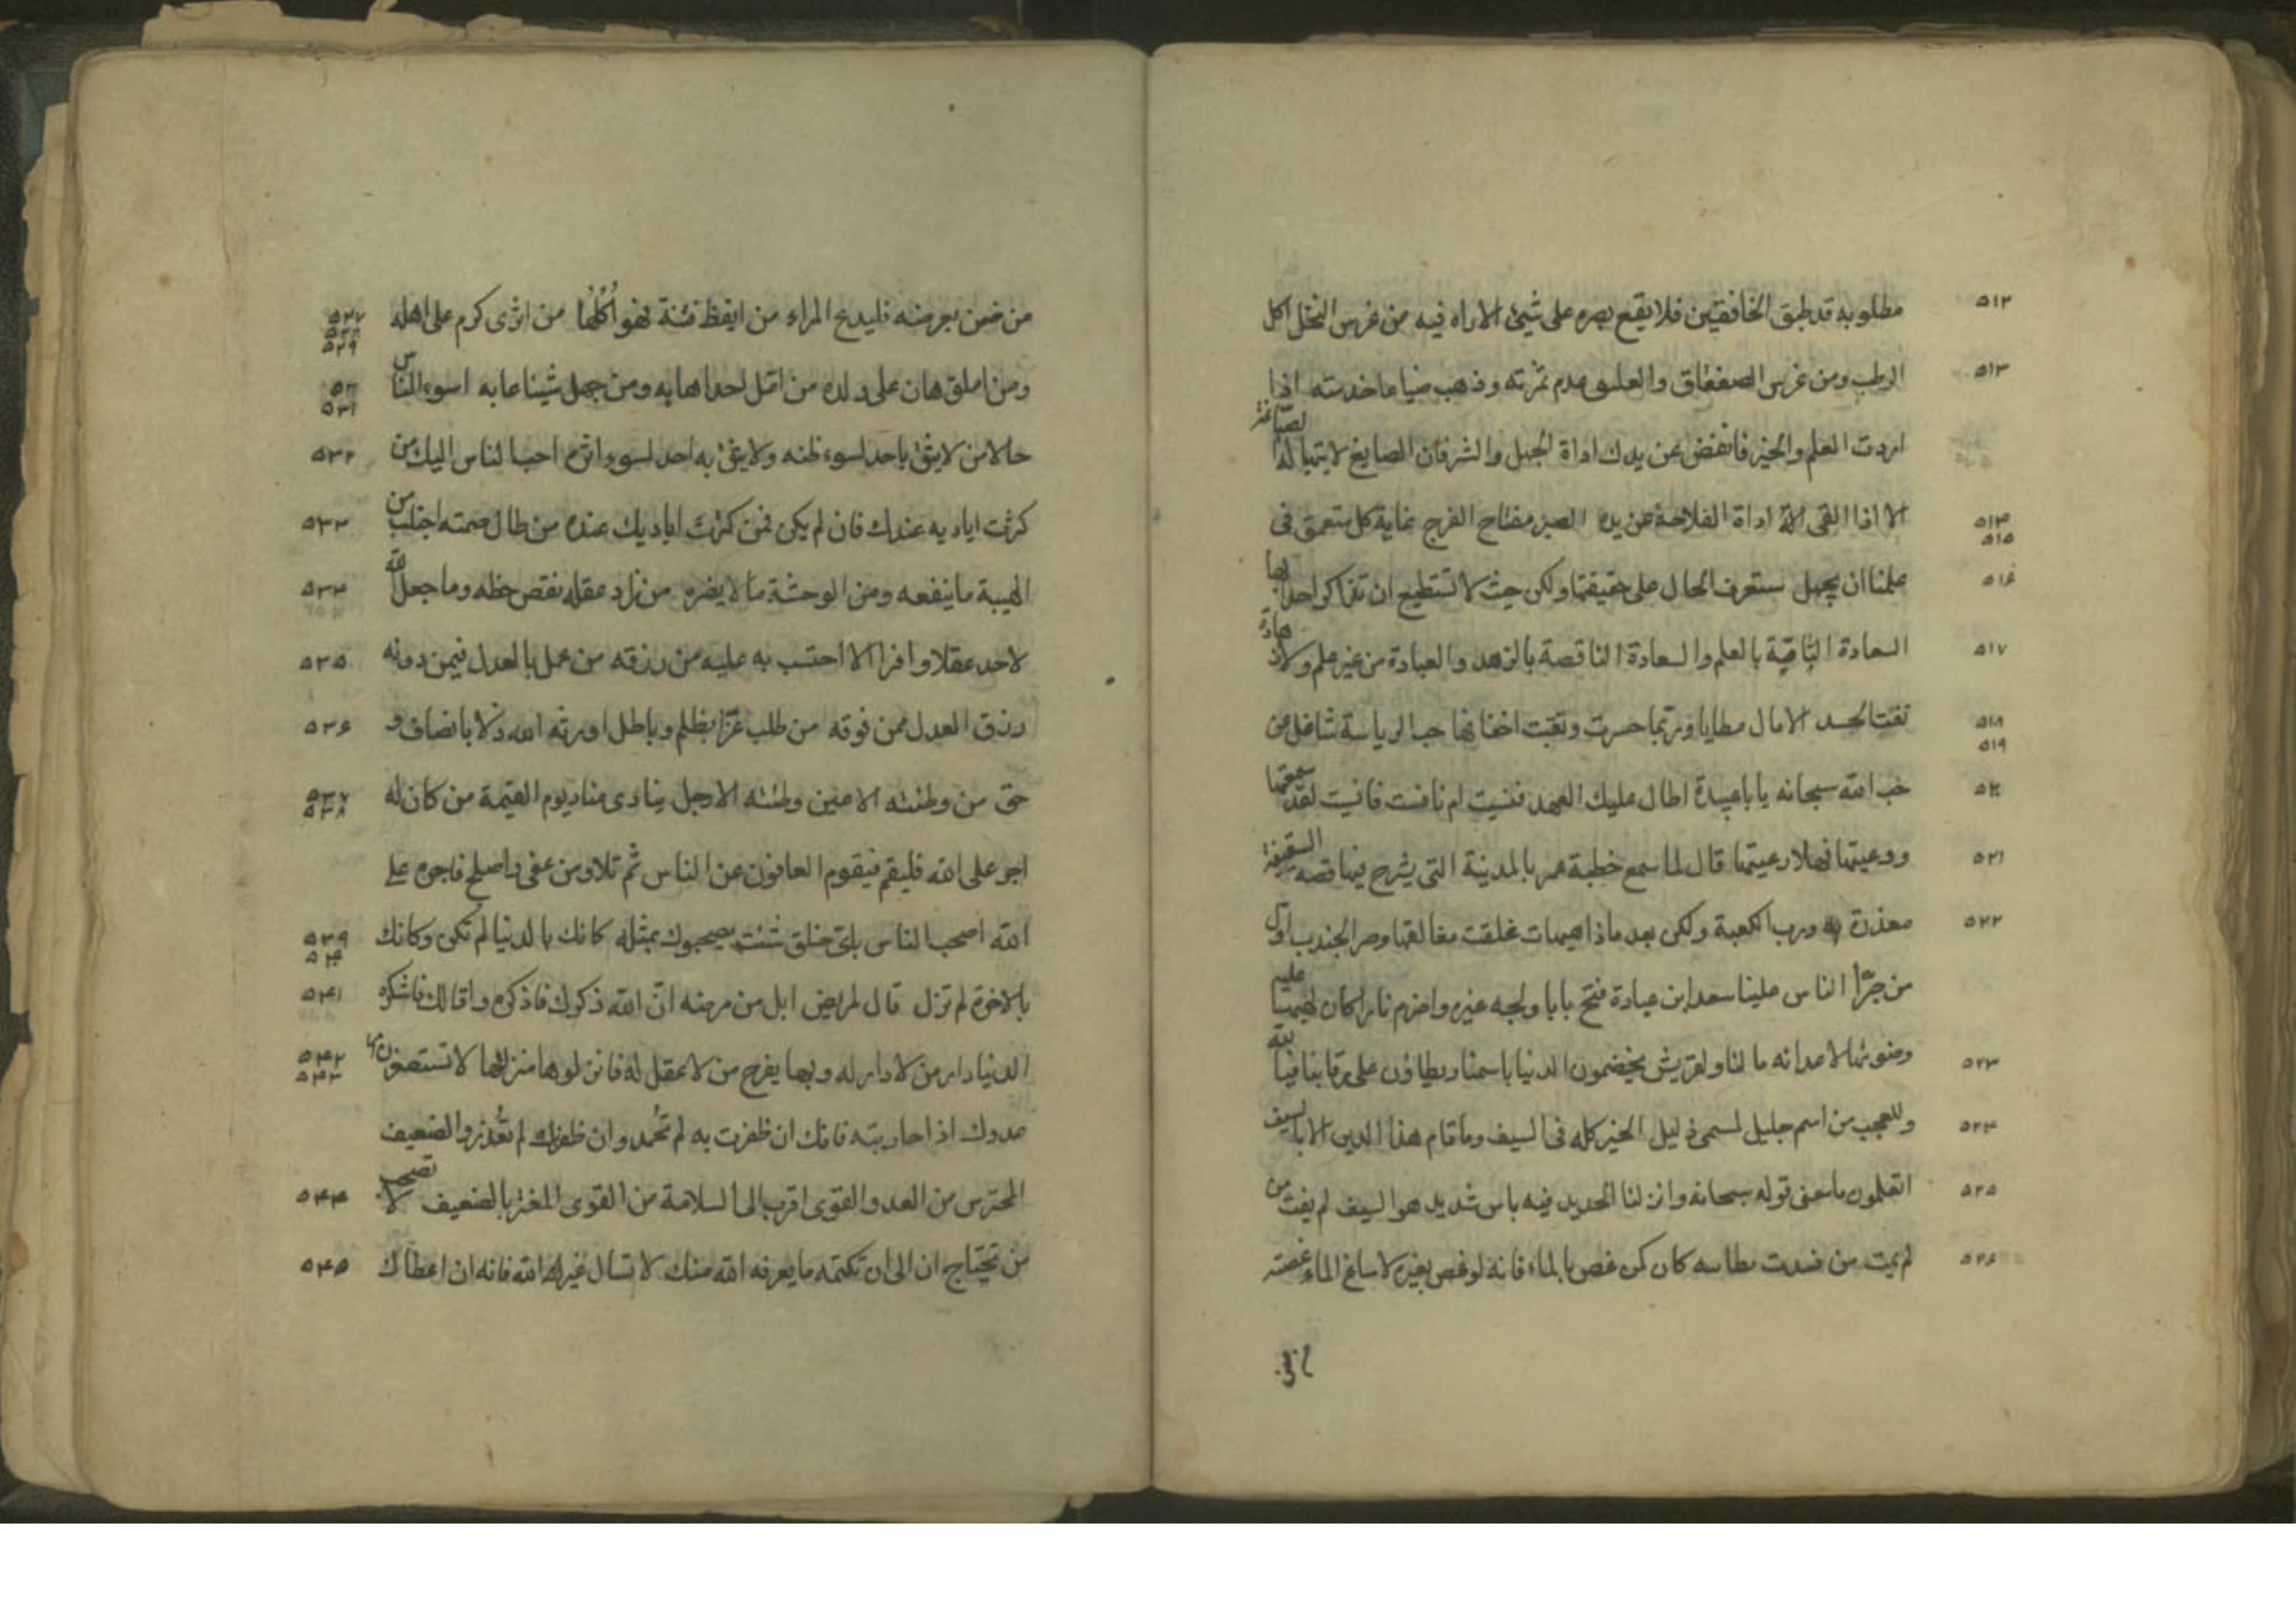 ٥١٢ مطلوبه قد طبق الخافقين فلا يقع بصره على شيئ الا راه فيه من غرس النخل اكل
٥١٣ الرطب ومن غرس الصفصاف والعليق عدم ثمرته وذهب ضياعا خدمته اذا
اردت العلم والخير فانفض عن يدك اداة الجهل والشر فان الصايغ لا يتهيا له الصياغة
٥١٤ ٥١٥ الا اذا القى اداة الفلاحة عن يده الصبر مفتاح الفرج غاية كل متعمق فى
٥١٦ علمنا ان يجهل ستعرف الحال على حقيقتها ولكن حيث لا تستطيع ان تذاكر احدا بها
٥١٧ السعادة التامة بالعلم والسعادة الناقصة بالزهد والعبادة من غير علم ولا زهادة
٥١٨ ٥١٩ تعب الجسد الامال مطايا وربما حسرت ونقبت اخفافها حب الرياسة شاغل عن
٥٢٠ حب الله سبحانه يا با عبيدة اطال عليك العهد فنسيت ام نافست فانسيت لقد سمعتها
٥٢١ ووعيتها فهلا رعيتها قال لما سمع خطبة عمر بالمدينة التى يشرح فيها قصه السقيفة
٥٢٢ معذرة ورب الكعبة ولكن بعد ماذا هيهات غلقت مغالقها وصر الجندب اول
من جرّا الناس علينا سعد ابن عبادة فتح بابا ولجه غيره واضرم نارا كان لهيبها عليه
٥٢٣ وضوئها لاعدائه ما لنا ولقريش يخضمون الدنيا باسمنا ويطاؤن على رقابنا فيا لله
٥٢٤ وللعجب من اسم جليل لمسمى ذليل الخير كله فى السيف وما قام هذا الدين الا بالسيف
٥٢٥ اتعلمون ما معنى قوله سبحانه وانزلنا الحديد فيه باس شديد هو السيف لم يفت من
٥٢٦ لم يمت من فسدت بطانته كان كمن غص بالماء فانه لو غص بغيره لاساغ الماء غصته
٥٢٧ ٥٢٨ ٥٢٩ من ضن بعرضه فليدع المراء من ايقظ فتنة فهو اُكُلُها من اثرى كرم على اهله
٥٣٠ ٥٣١ ومن املق هان على ولده من امّل احدا هابه ومن جهل شيئا عابه اسوء الناس
٥٣٢ حالا من لا يثق باحد لسوء ظنه ولا يثق به احد لسوء اثره احب الناس اليك من
٥٣٣ كثرت اياديه عندك فان لم يكن فمن كثرت اياديك عنده من طال صمته اجتلب من
٥٣٤ الهيبة ما ينفعه ومن الوحشة ما لا يضره من زاد عقله نقص حظه وما جعل الله
٥٣٥ لاحد عقلا وافرا الا احتسب به عليه من رزقه من عمل بالعدل فيمن دونه
٥٣٦ رزق العدل ممن فوقه من طلب عزّا بظلم وباطل اورثه الله ذلا بانصاف و
٥٣٧ ٥٣٨ حق من وطئته الاعين وطئته الارجل ينادى مناد يوم القيمة من كان له
اجر على الله فليقم فيقوم العافون عن الناس ثم تلا ومن عفى واصلح فاجره على
٥٣٩ ٥٤٠ الله اصحب الناس باىّ خلق شئت يصحبوك بمثله كانك بالدنيا لم تكن وكانك
٥٤١ بالاخرة لم تزل قال لمريض ابل من مرضه انّ الله ذكرك فاذكره واقالك فاشكره
٥٤٢ ٥٤٣ الدنيا دار من لا دار له وبها يفرح من لا عقل له فانزلوها منزلتها لا تستصغرن
عدوك اذا حاربته فانك ان ظفرت به لم تحُمد وان ظفر بك لم تعُذر والضعيف
٥٤٤ المحترس من العدو القوى اقرب الى السلامة من القوى المغتر بالضعيف لا تصحب
٥٤٥ من تحتاج ان تكتمه ما يعرفه الله منك لا تسال غير الله فانه ان اعطاك